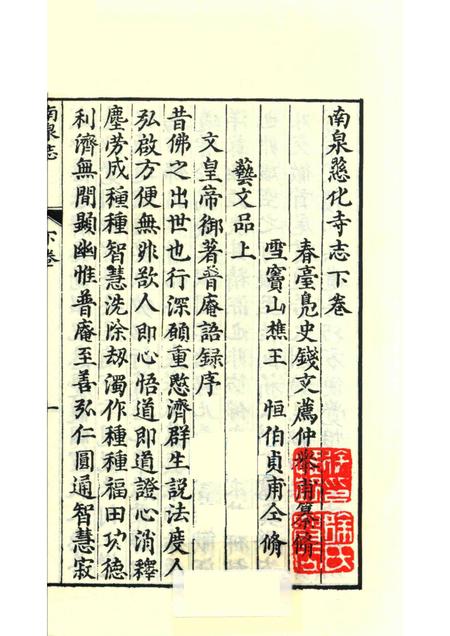 南泉慈化寺志下卷
春臺鳧史錢文薦仲舉甫纂脩
雪竇山樵王 恒伯貞甫仝脩
藝文品上
文皇帝御著普庵語録序
昔佛之出世也行深願重愍濟群生説法度人
弘啟方便無非欲人即心悟道即道證心消釋
塵劳成種種智慧洗除刼濁作種種福田功德
利濟無間顯幽惟普庵至善弘仁圓通智慧寂
南泉志
下卷
一